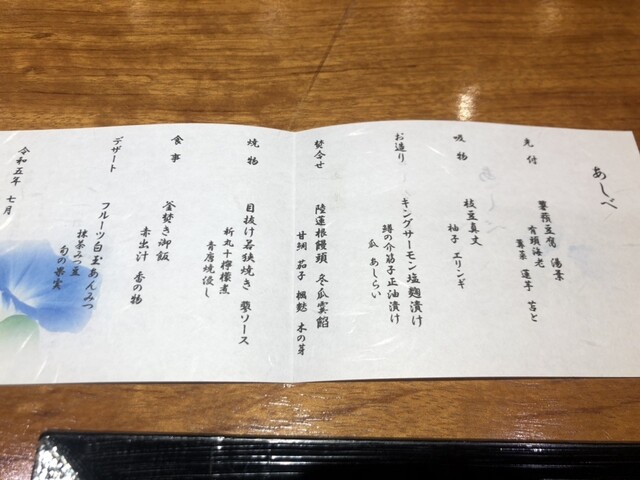 あしべ
先付
薯蕷豆腐 湯葉
有頭海老
蓴菜 蓮芋
吸物
枝豆真丈
柚子 エリンギ
お造り
キングサーモン塩麹漬け
鱒の介筋子正油漬け
瓜 あしらい
焚合せ
陸蓮根饅頭 冬瓜雲餡
甘鯛 茄子 楓麩 木の芽
焼物
目抜け若狭焼き 蓼ソース
新丸十檸檬煮
青唐焼浸し
食事
釜焚き御飯
赤出汁 香の物
デザート
フルーツ白玉あんみつ
抹茶みつ豆
旬の果実
令和五年 七月